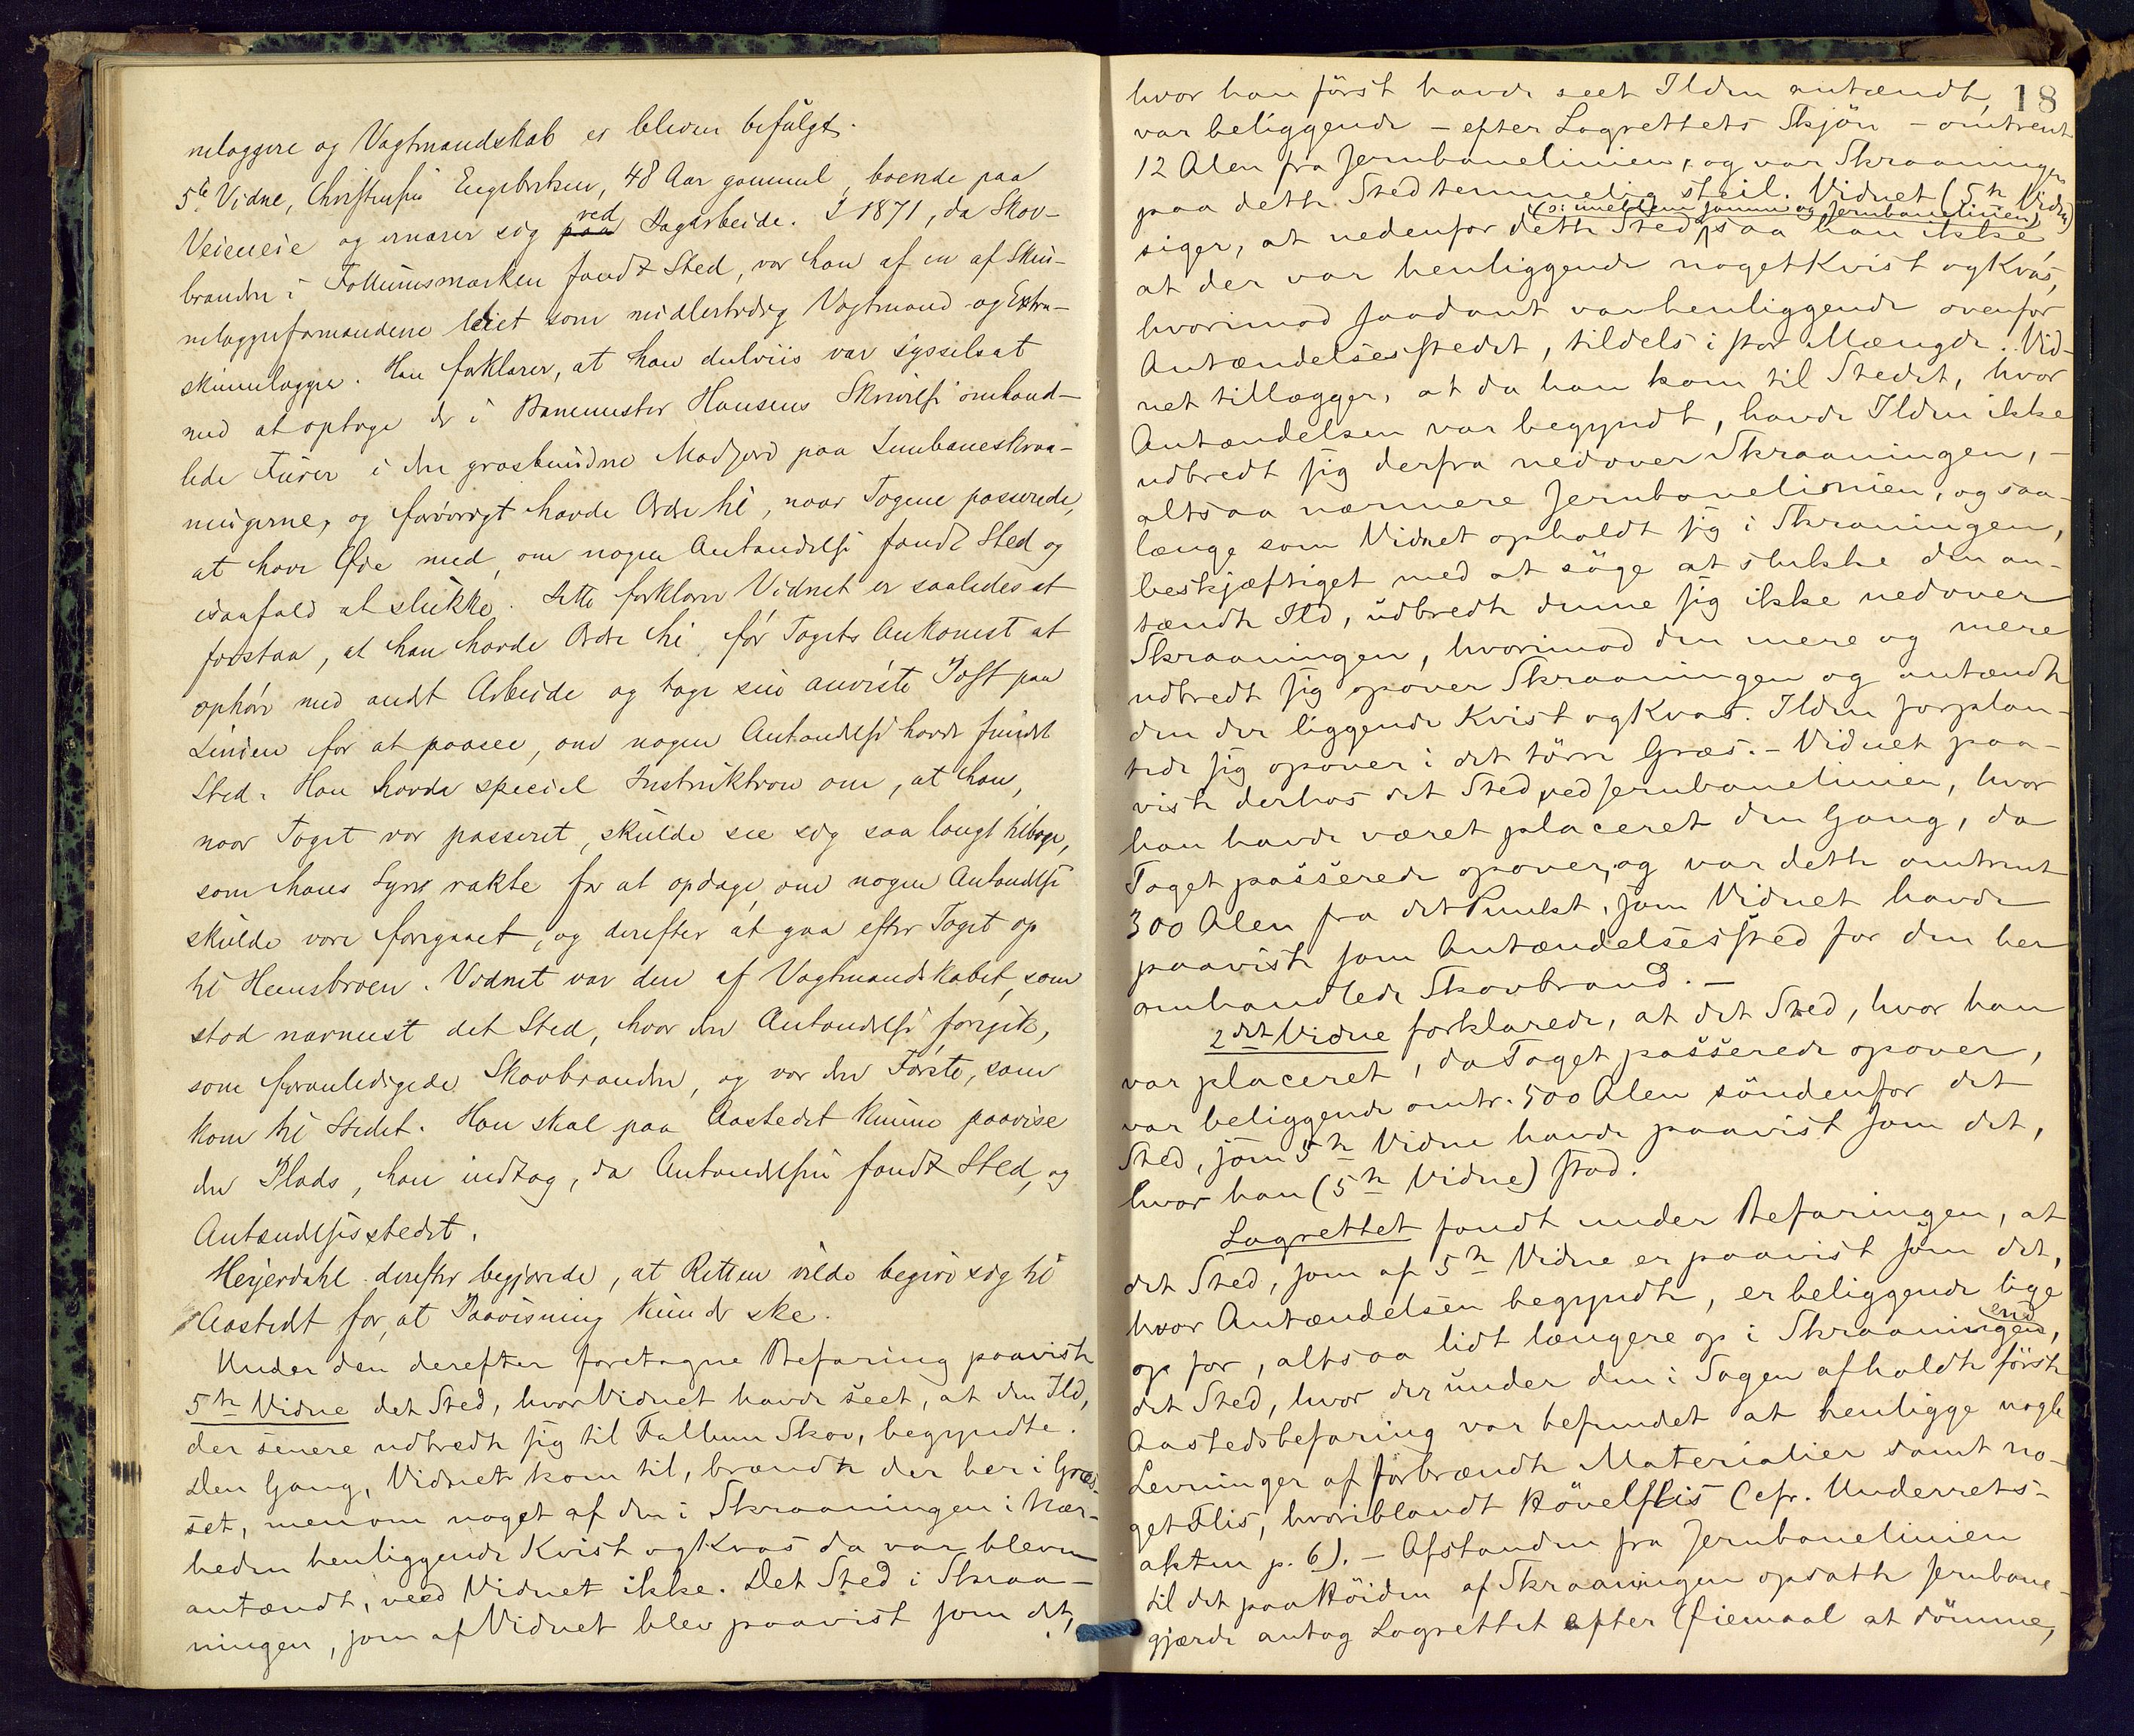 neloggere og Vagtmandskab er bleven befulgt.
5te Vidne, Christensen Engebretsen, 48 Aar gammel, boende paa
Veieneie og ernærer sig paa ved Dagarbeide. I 1871, da Skov-
branden i Follumsmarken fandt Sted, var han af en af Skin-
neloggerformændene leiet som midlertidig Vagtmand og Extra-
skinnelogger. Han forklarer, at han delviis var sysselsat
med at optage de i Banemester Hansens Skrivelse omhand-
lede Furer i den græsbundne Madjord paa Jernbaneskraa-
ningerne, og forøvrigt havde Ordre til, naar Togene passerede,
at have Øie med, om nogen Antændelse fandt Sted og
isaafald at slukke. Dette forklarer Vidnet er saaledes at
forstaa, at han havde Ordre til, før Togets Ankomst at
ophøre med andet Arbeide og tage sin anviste Post paa
Linien for at paasee, om nogen Antændelse havde fundet
Sted. Han havde speciel Instruktion om, at han,
naar Toget var passeret, skulde see sig saa langt tilbage,
som hans Syn rakte for at opdage, om nogen Antændelse
skulde være foregaaet, og derefter at gaa efter Toget op
til Hensbroen. Vidnet var den af Vagtmandskabet, som
stod nærmest det Sted, hvor den Antændelse foregik,
som foranledigede Skovbranden, og var den Første, som
kom til Stedet. Han skal paa Aastedet kunne paavise
den Plads, han indtog, da Antændelsen fandt Sted, og
Antændelsesstedet.
Heyerdahl derefter begjærede, at Retten vilde begive sig til
Aastedet for, at Paavisning kunde ske.
Under den derefter foretagne Befaring paaviste
5te Vidne det Sted, hvor Vidnet havde seet, at den Ild,
der senere udbredte sig til Follum Skov, begyndte.
Den Gang, Vidnet kom til, brændte der her i Græs-
set, men om noget af den i Skraaningen i Nær-
heden henliggende Kvist og Kvas da var bleven
antændt, veed Vidnet ikke. Det Sted i Skraa-
ningen, som af Vidnet blev paavist som det,
18
hvor han først havde seet Ilden antændt,
var beliggende – efter Lagrettets Skjøn – omtrent
12 Alen fra Jernbanelinien, og var Skraaningen
paa dette Sted temmelig steil. Vidnet (5te Vidne)
(ɔ: mellem samme og Jernbanelinien)
siger, at nedenfor dette Sted saa han ikke,
at der var henliggende noget Kvist og Kvas,
hvorimod saadant var henliggende ovenfor
Antændelsesstedet, tildels i stor Mængde. Vid-
net tillægger, at da han kom til Stedet, hvor
Antændelsen var begyndt, havde Ilden ikke
udbredt sig derfra nedover Skraaningen, –
altsaa nærmere Jernbanelinien, og saa-
længe som Vidnet opholdt sig i Skraaningen,
beskjæftiget med at søge at slukke den an-
tændte Ild, udbredte denne sig ikke nedover
Skraaningen, hvorimod den mere og mere
udbredt sig opover Skraaningen og antændte
den der liggende Kvist og Kvas. Ilden forplan-
tede sig opover i det tørre Græs. – Vidnet paa-
viste derhos det Sted ved Jernbanelinien, hvor
han havde været placeret den Gang, da
Toget passerede opover, og var dette omtrent
300 Alen fra det Punkt, som Vidnet havde
paavist som Antændelsessted for den her
omhandlede Skovbrand. –
2det Vidne forklarede, at det Sted, hvor han
var placeret, da Toget passerede opover,
var beliggende omtr. 500 Alen søndenfor det
Sted, som 5te Vidne havde paavist som det,
hvor han (5te Vidne) stod.
Lagrettet fandt under Befaringen, at
det Sted, som af 5te Vidne er paavist som det,
hvor Antændelsen begyndte, er beliggende lige
op for, altsaa lidt længere op i Skraaningen, end
det Sted, hvor der under den i Sagen afholdte første
Aastedsbefaring var befundet at henligge nogle
Levninger af forbrændte Materialier samt no-
get Flis, hvoriblandt Høvelflis (cfr. Underrets-
akten p. 6). – Afstanden fra Jernbanelinien
til det paa Høiden af Skraaningen opsatte Jernbane-
gjærde antog Lagrettet efter Øiemaal at dømme,